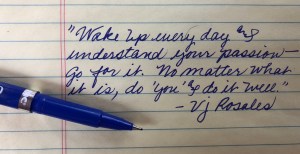 "Wake up every day &
understand your passion—
go for it. No matter what
it is, do 'you' & do it well."
- Vj Rosales